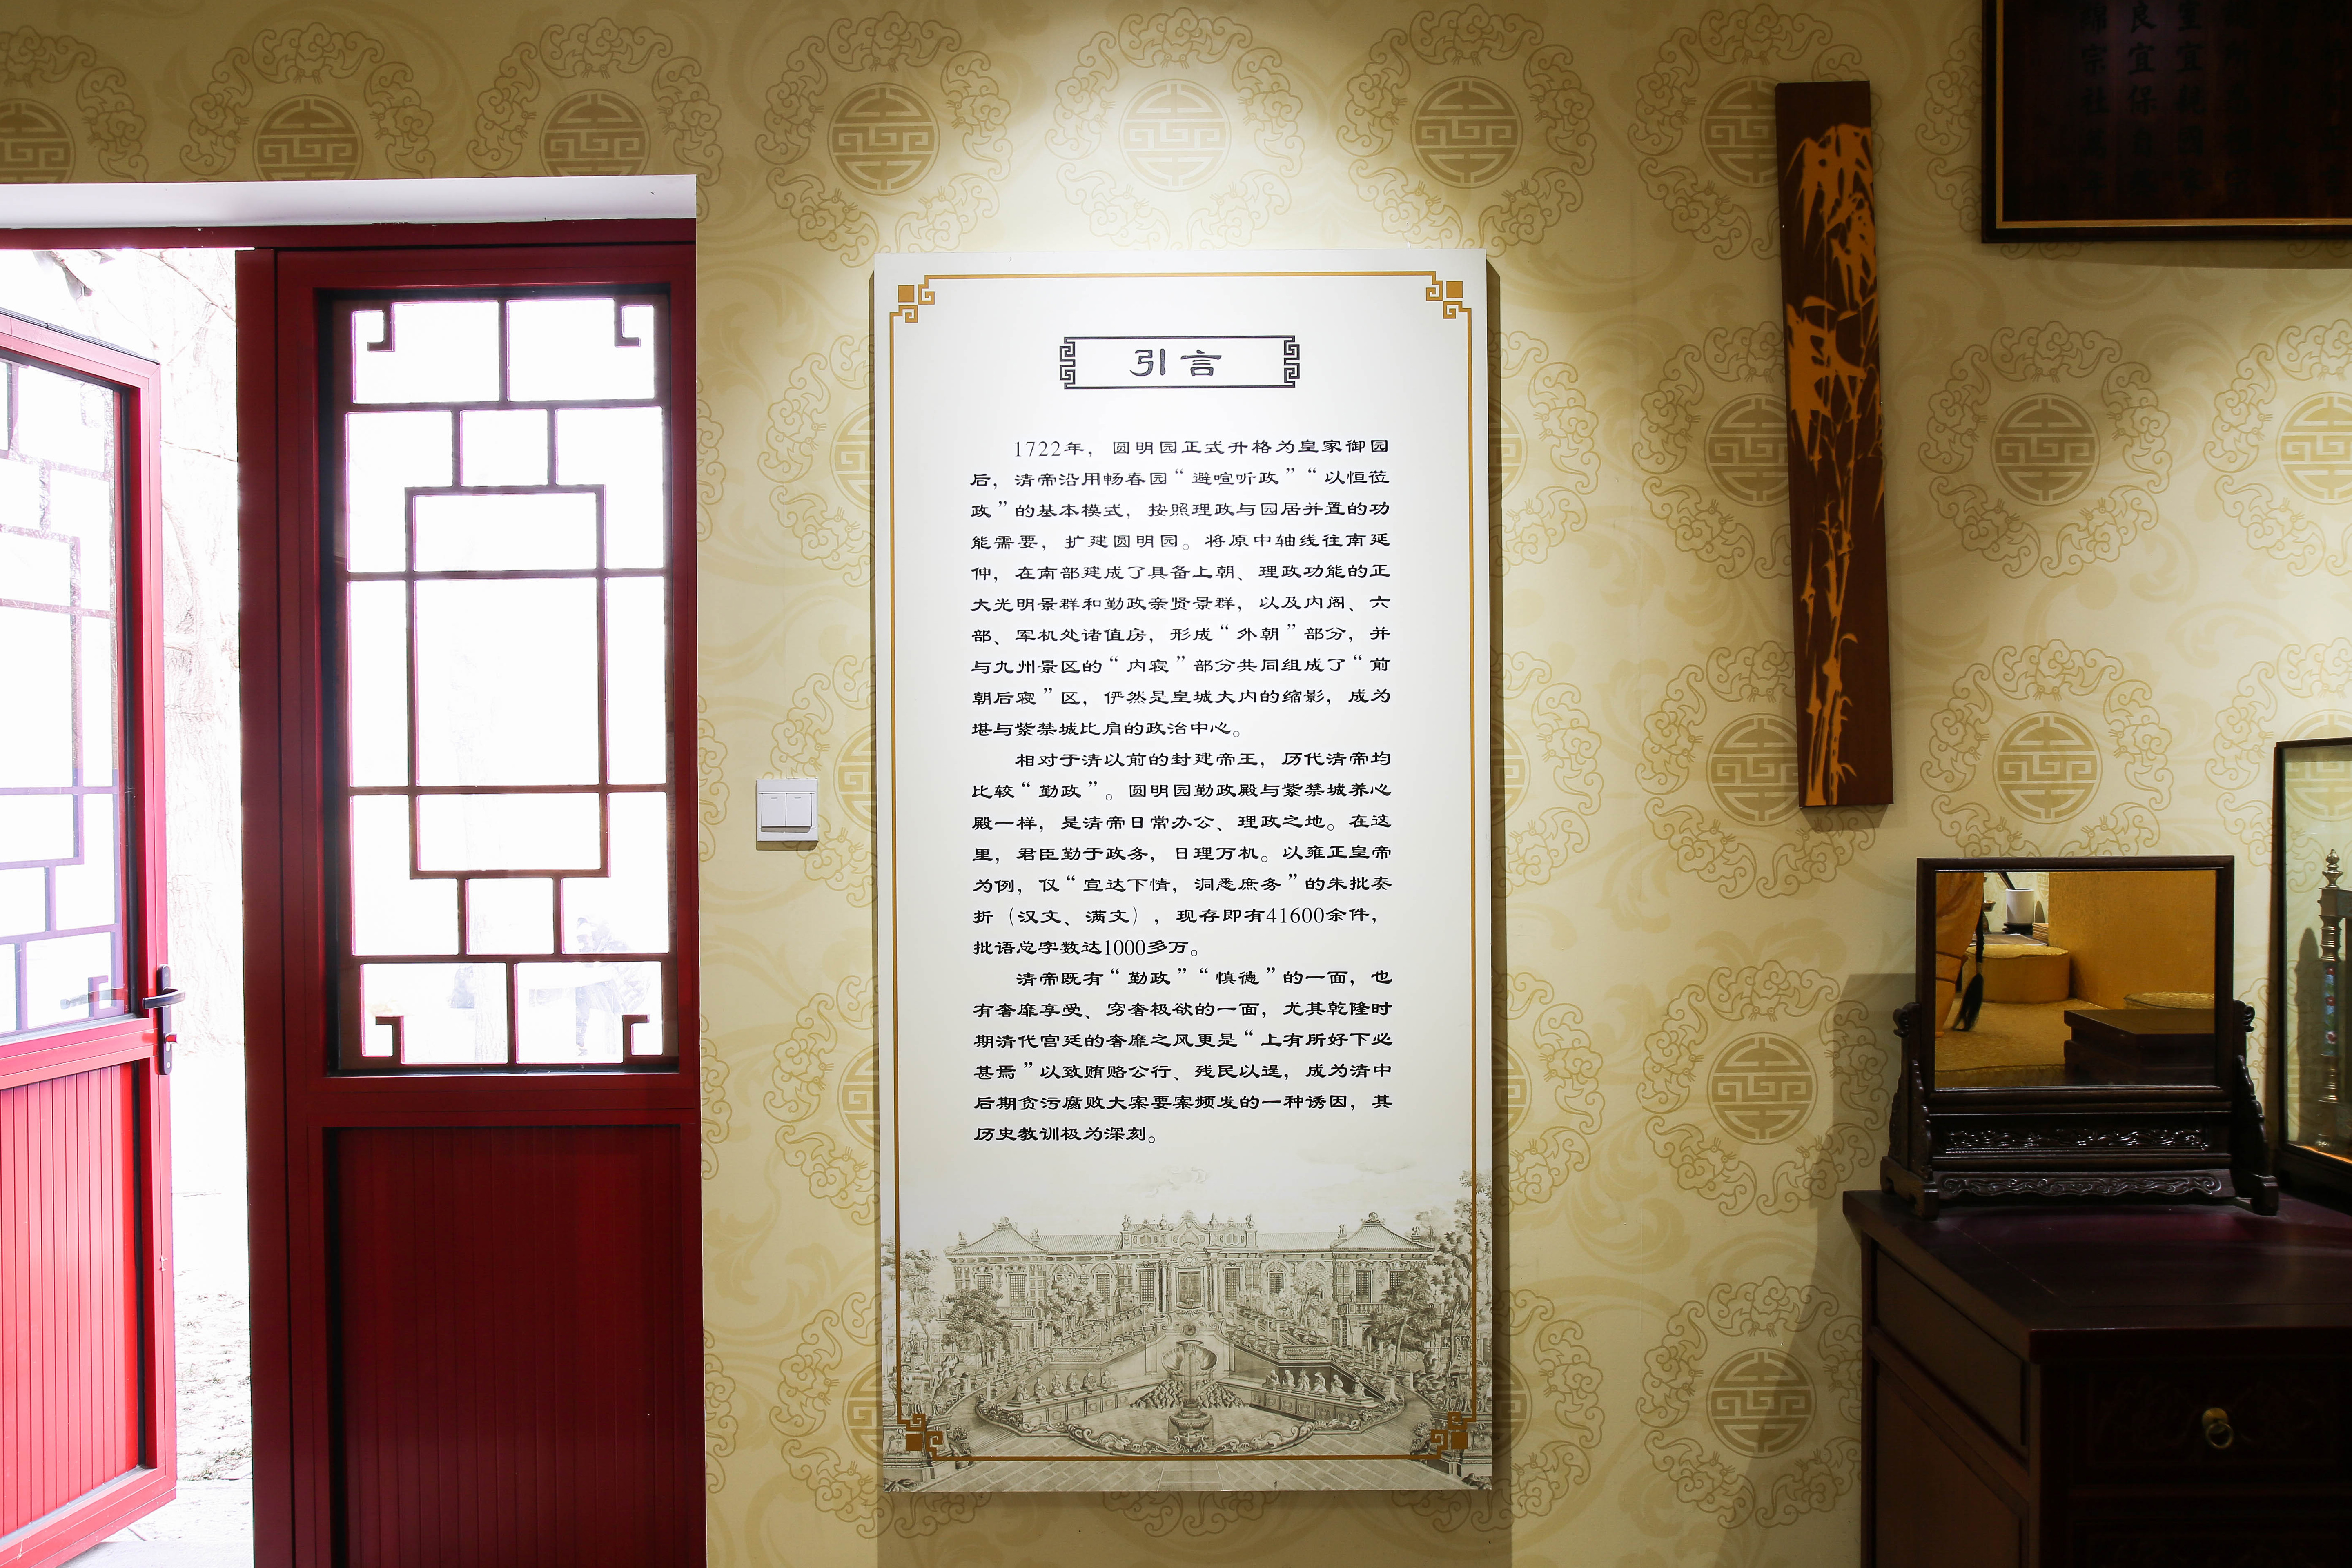 引言
1722年，圆明园正式升格为皇家御园
后，清帝沿用畅春园“避喧听政”“以恒莅
政”的基本模式，按照理政与园居并置的功
能需要，扩建圆明园。将原中轴线往南延
伸，在南部建成了具备上朝、理政功能的正
大光明景群和勤政亲贤景群，以及内阁、六
部、军机处诸值房，形成“外朝”部分，并
与九州景区的“内寝”部分共同组成了“前
朝后寝”区，俨然是皇城大内的缩影，成为
堪与紫禁城比肩的政治中心。
相对于清以前的封建帝王，历代清帝均
比较“勤政”。圆明园勤政殿与紫禁城养心
殿一样，是清帝日常办公、理政之地。在这
里，君臣勤于政务，日理万机。以雍正皇帝
为例，仅“宣达下情，洞悉庶务”的朱批奏
折（汉文、满文），现存即有41600余件，
批语总字数达1000多万。
清帝既有“勤政”“慎德”的一面，也
有奢靡享受、穷奢极欲的一面，尤其乾隆时
期清代宫廷的奢靡之风更是“上有所好下必
甚焉”以致贿赂公行、残民以逞，成为清中
后期贪污腐败大案要案频发的一种诱因，其
历史教训极为深刻。
良宜保
宜
宗社